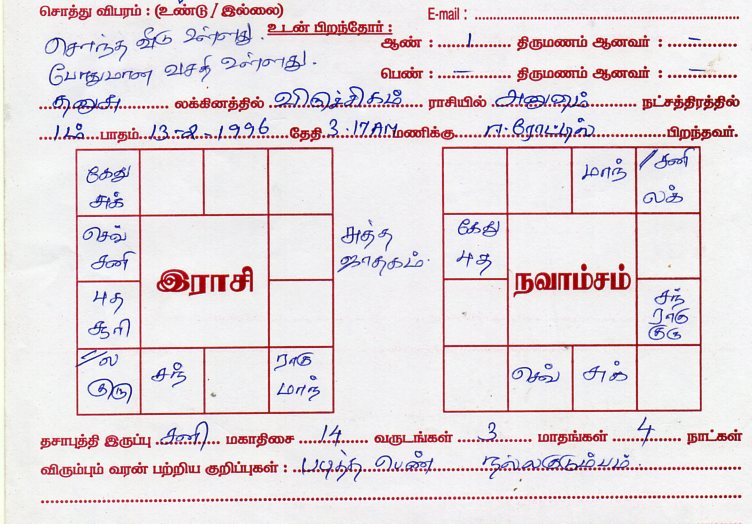 சொத்து விபரம் : (உண்டு / இல்லை)
E-mail :
சொந்த வீடு உள்ளது.
உடன் பிறந்தோர் :
ஆண் : 1 திருமணம் ஆனவர் : –
போதுமான வசதி உள்ளது.
பெண் : – திருமணம் ஆனவர் : –
தனுசு லக்கினத்தில் விருச்சிகம் ராசியில் அனுஷம் நட்சத்திரத்தில்
1ம் பாதம் 13-2-1996 தேதி 3.17AM மணிக்கு ஈரோட்டில் பிறந்தவர்.
கேது
சுக்
செவ்
சனி
அத்த
ஜாதகம்.
இராசி
புத
சூரி
//ல
குரு
சந்
ராகு
மாந்
மாந்
//சனி
லக்
கேது
புத
நவாம்சம்
சந்
ராகு
குரு
செவ்
சுக்
தசாபுத்தி இருப்பு சனி மகாதிசை 14 வருடங்கள் 3 மாதங்கள் 4 நாட்கள்
விரும்பும் வரன் பற்றிய குறிப்புகள் : படித்த பெண் நல்லகுடும்பம்.